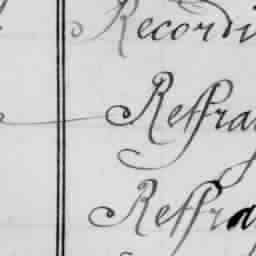 Recordi
Reffray
Reffray